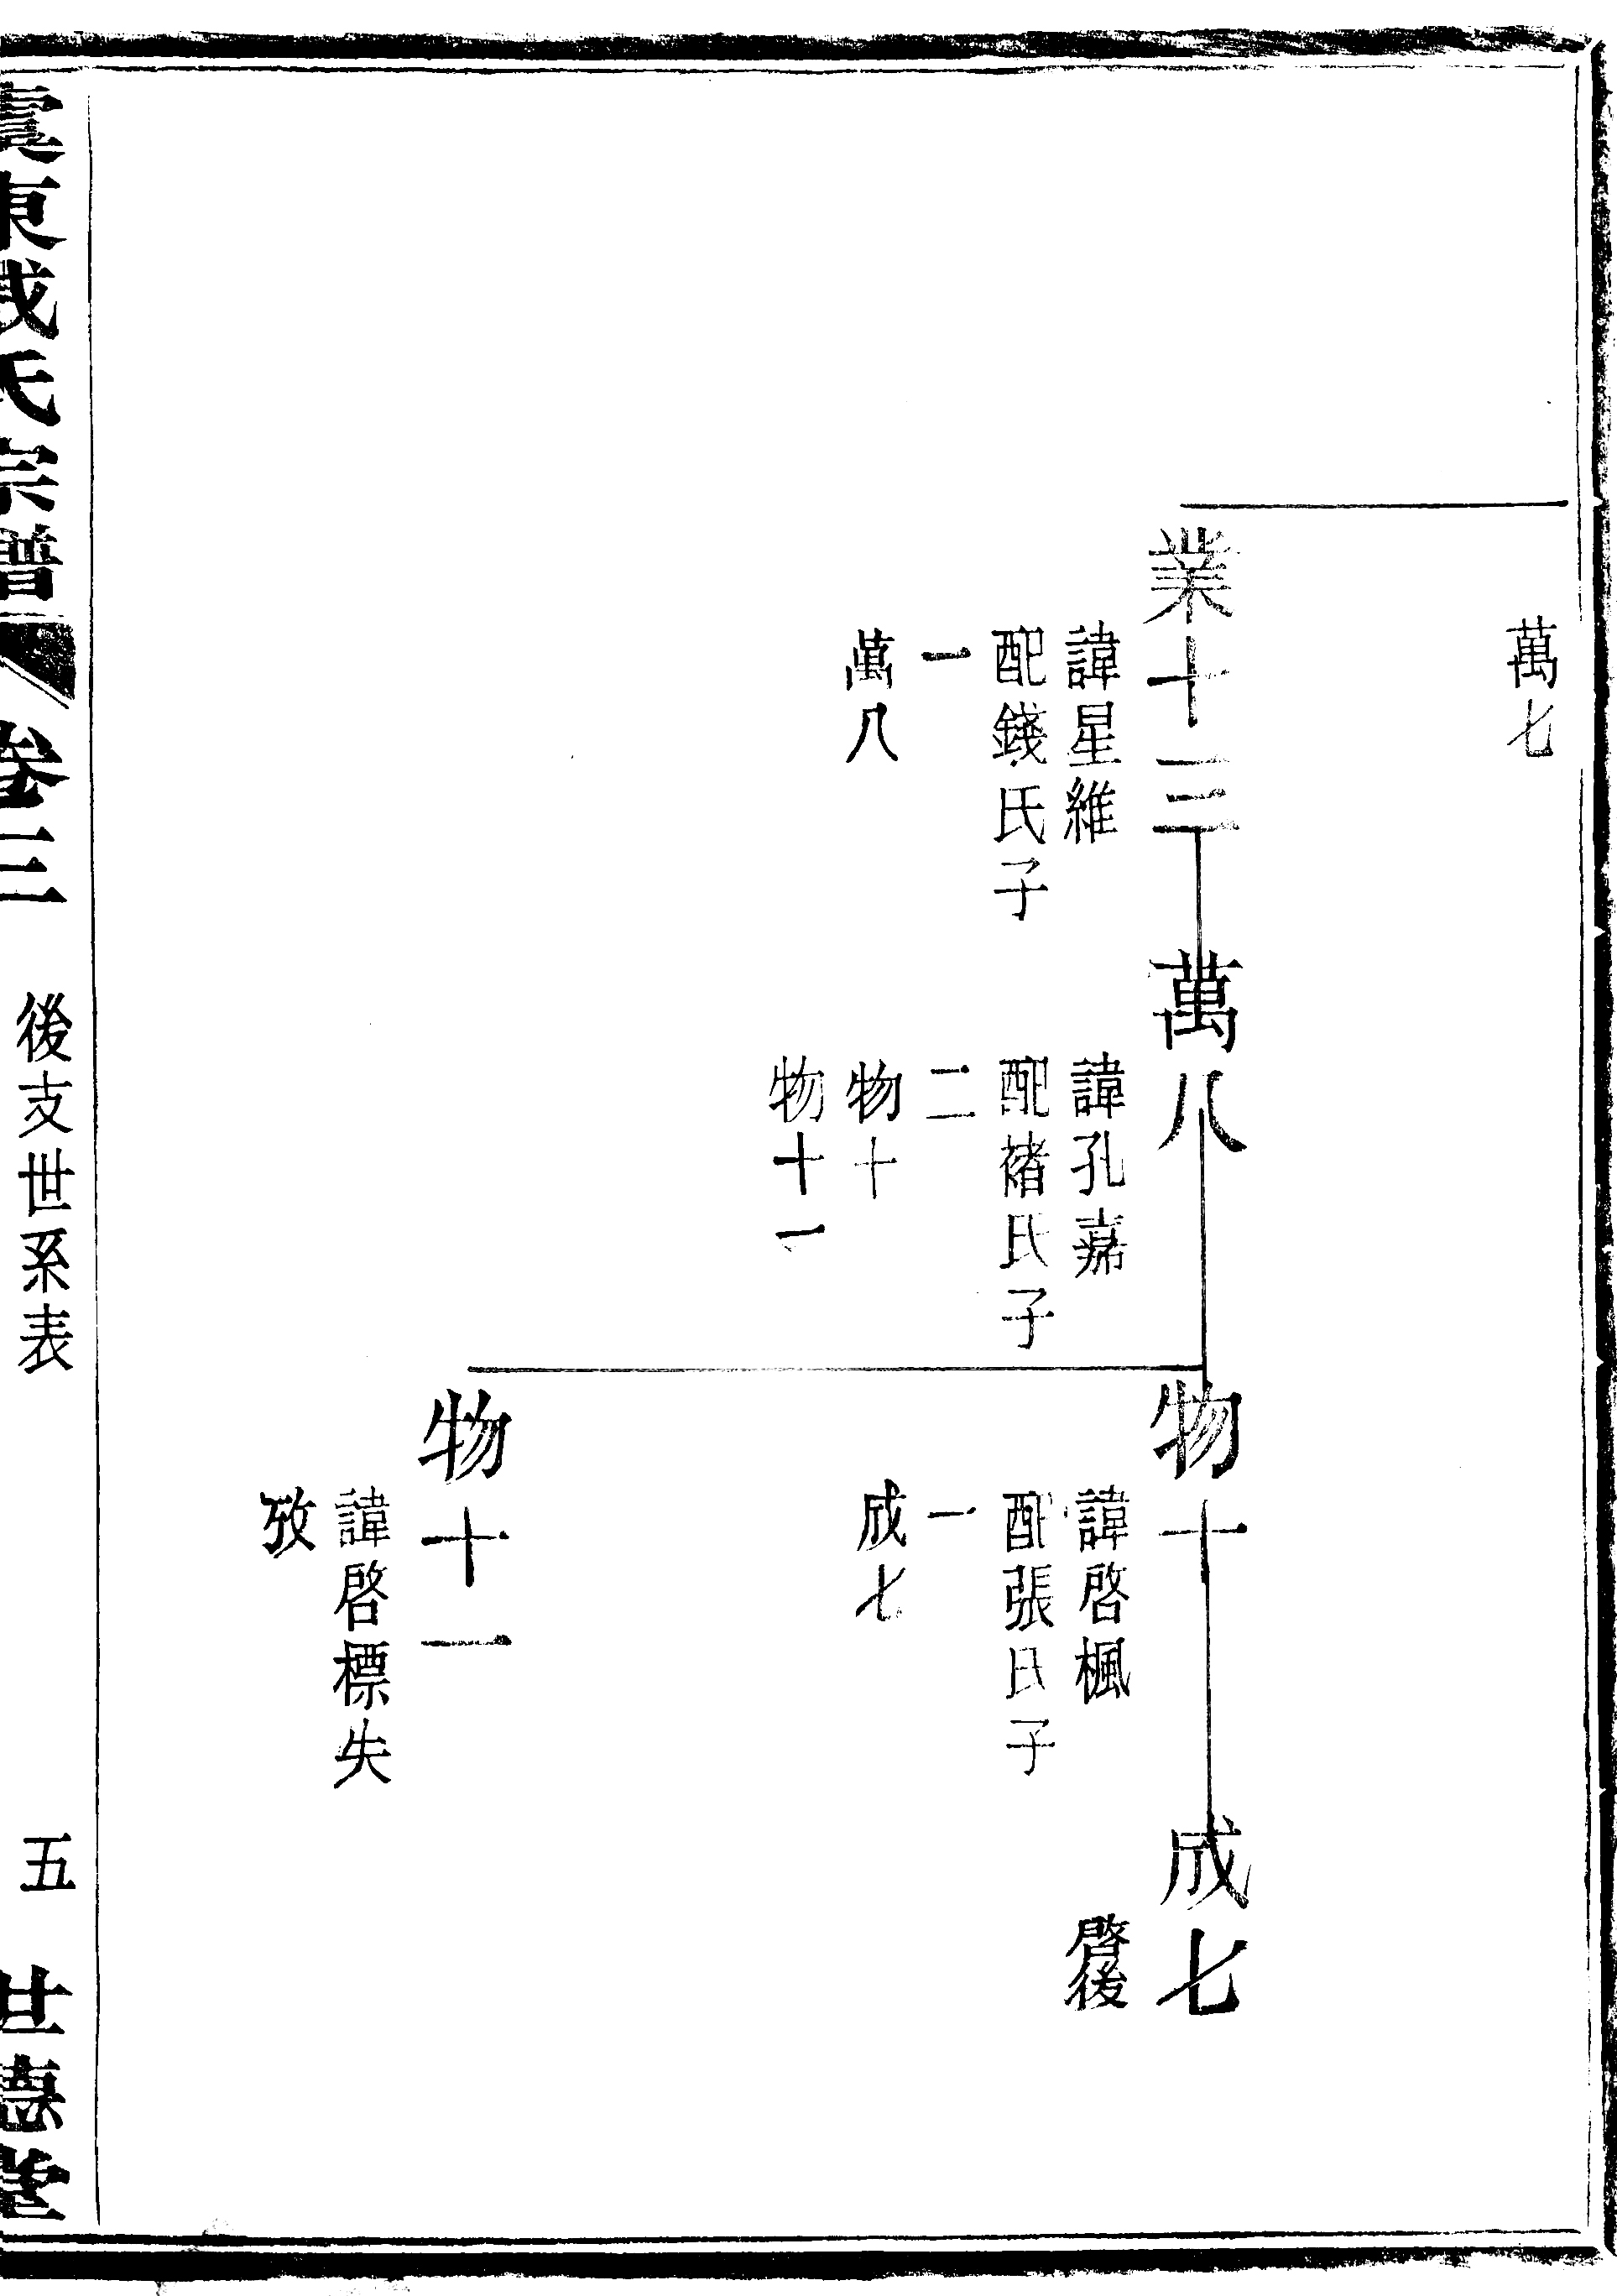 萬七
業十三
諱星維
配錢氏子
一
萬八
萬八
諱孔嘉
配褚氏子
二
物十
物十一
物十
諱啓楓
配張氏子
一
成七
成七
啓後
物十一
諱啓標失
攷
東戚氏宗譜 卷三 後支世系表 五 世德堂